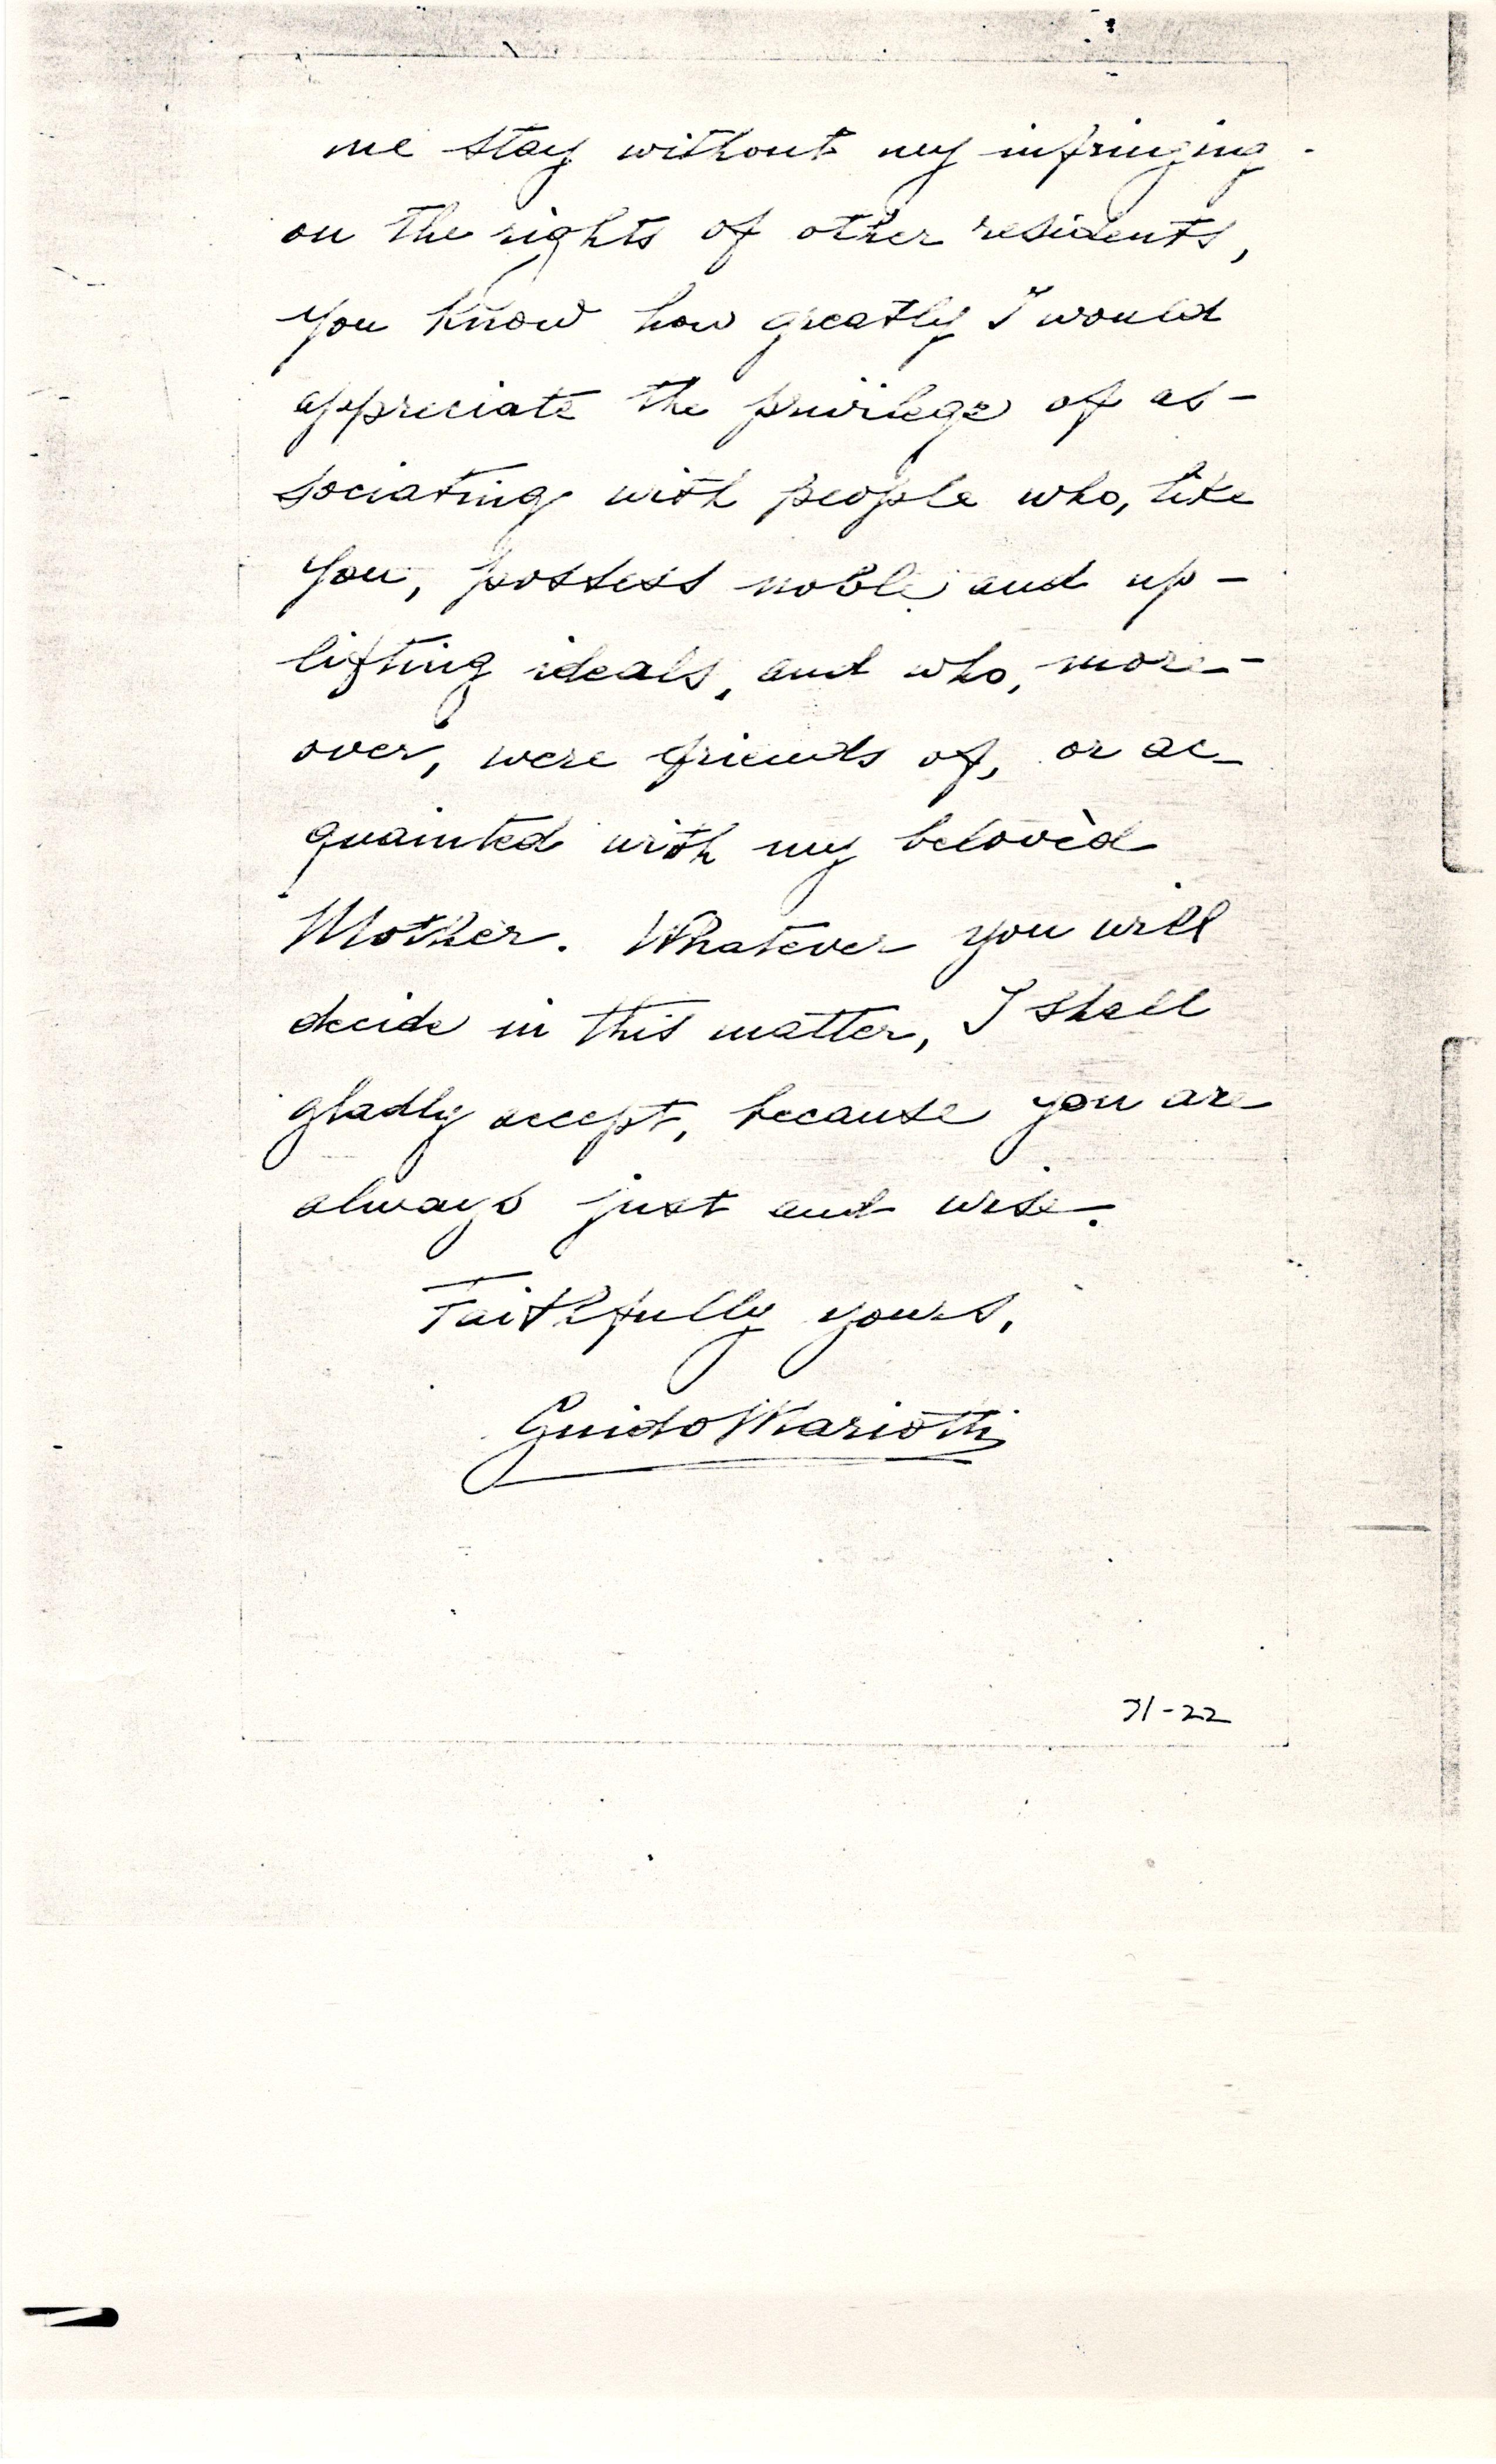 me stay without my infringing
on the rights of other residents,
you know how greatly I would
appreciate the privilege of as-
sociating with people who, like
you, possess noble and up-
lifting ideals, and who, more-
over, were friends of, or ac-
quainted with my beloved
Mother. Whatever you will
decide in this matter, I shall
gladly accept, because you are
always just and wise.
Faithfully yours,
Guido Mariotti
71-22